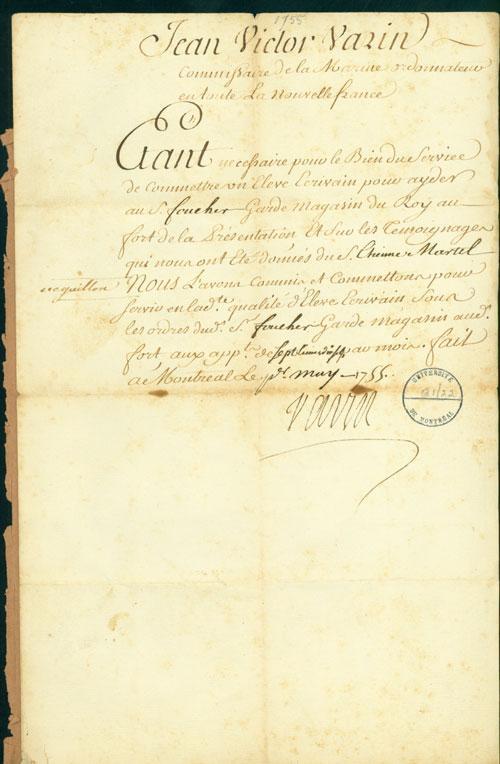 1755
Jean Victor Varin
Commissaire de la Marine ordonnateur
en toute La Nouvelle france
Etant necessaire pour le Bien du Service
de Commettre un Eleve Ecrivain pour ayder
au Sr. foucher Garde Magasin du Roy au
fort de la Présentation Et Sur les Témoignages
qui nous ont Eté donnés du Sr. Etienne Martel
Nous L'avons Commis et Commettons pour
Servir en lad.te qualité d'Eleve Ecrivain Sous
les ordres du d. Sr. foucher Garde magasin aud.
fort aux app.ts de au mois. fait
a Montreal Le may 1755.
Varin
UNIVERSITÉ
DE MONTRÉAL